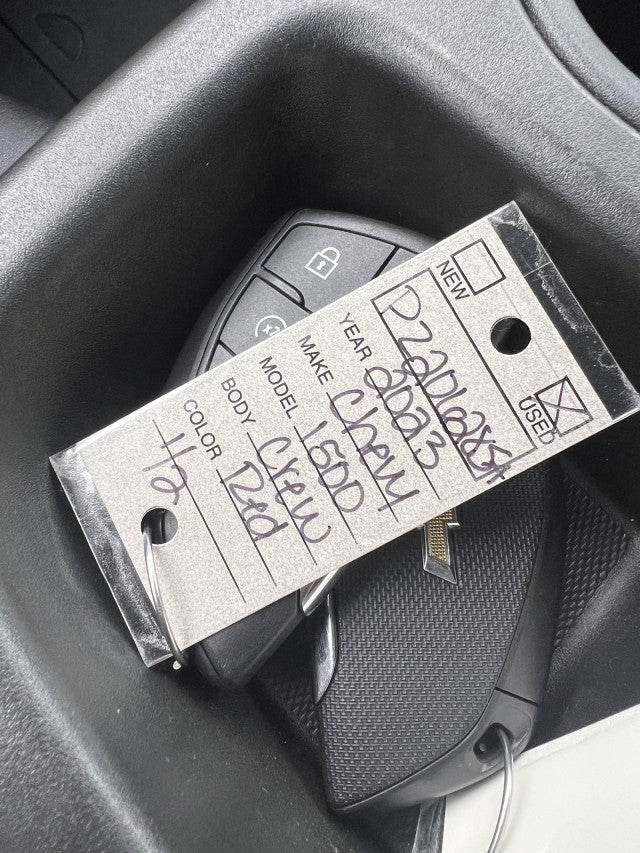 NEW
USED
YEAR 2023
MAKE Chevy
MODEL 1500
BODY Crew
COLOR Red
42